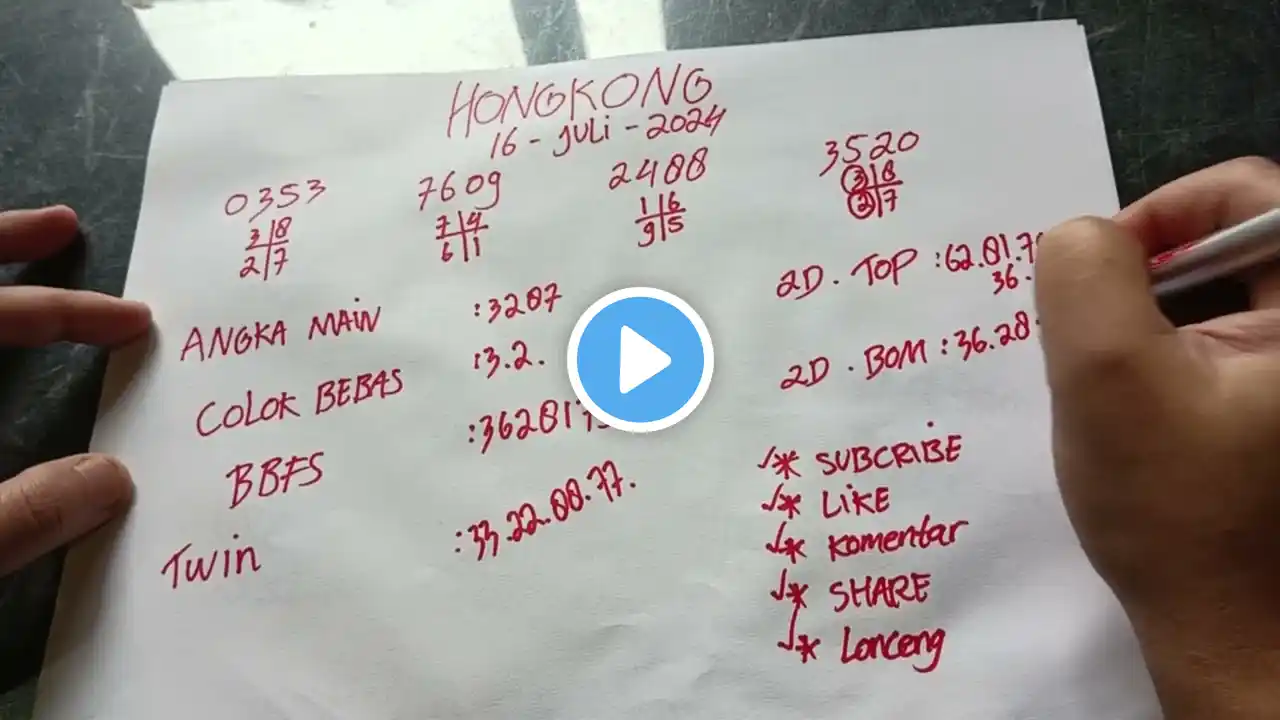 HONGKONG
16 - JULI - 2024
0353 7609 2488 3520
3|8 7|4 1|6 3|8
2|7 6|1 9|5 2|7
ANGKA MAIN :3287
COLOK BEBAS :3.2.
BBFS :362817
Twin :33.22.88.77.
2D . TOP :62.81.7
36.
2D . BOM :36.28
✓* SUBCRIBE
✓* LIKE
✓* Komentar
✓* SHARE
✓* Lonceng